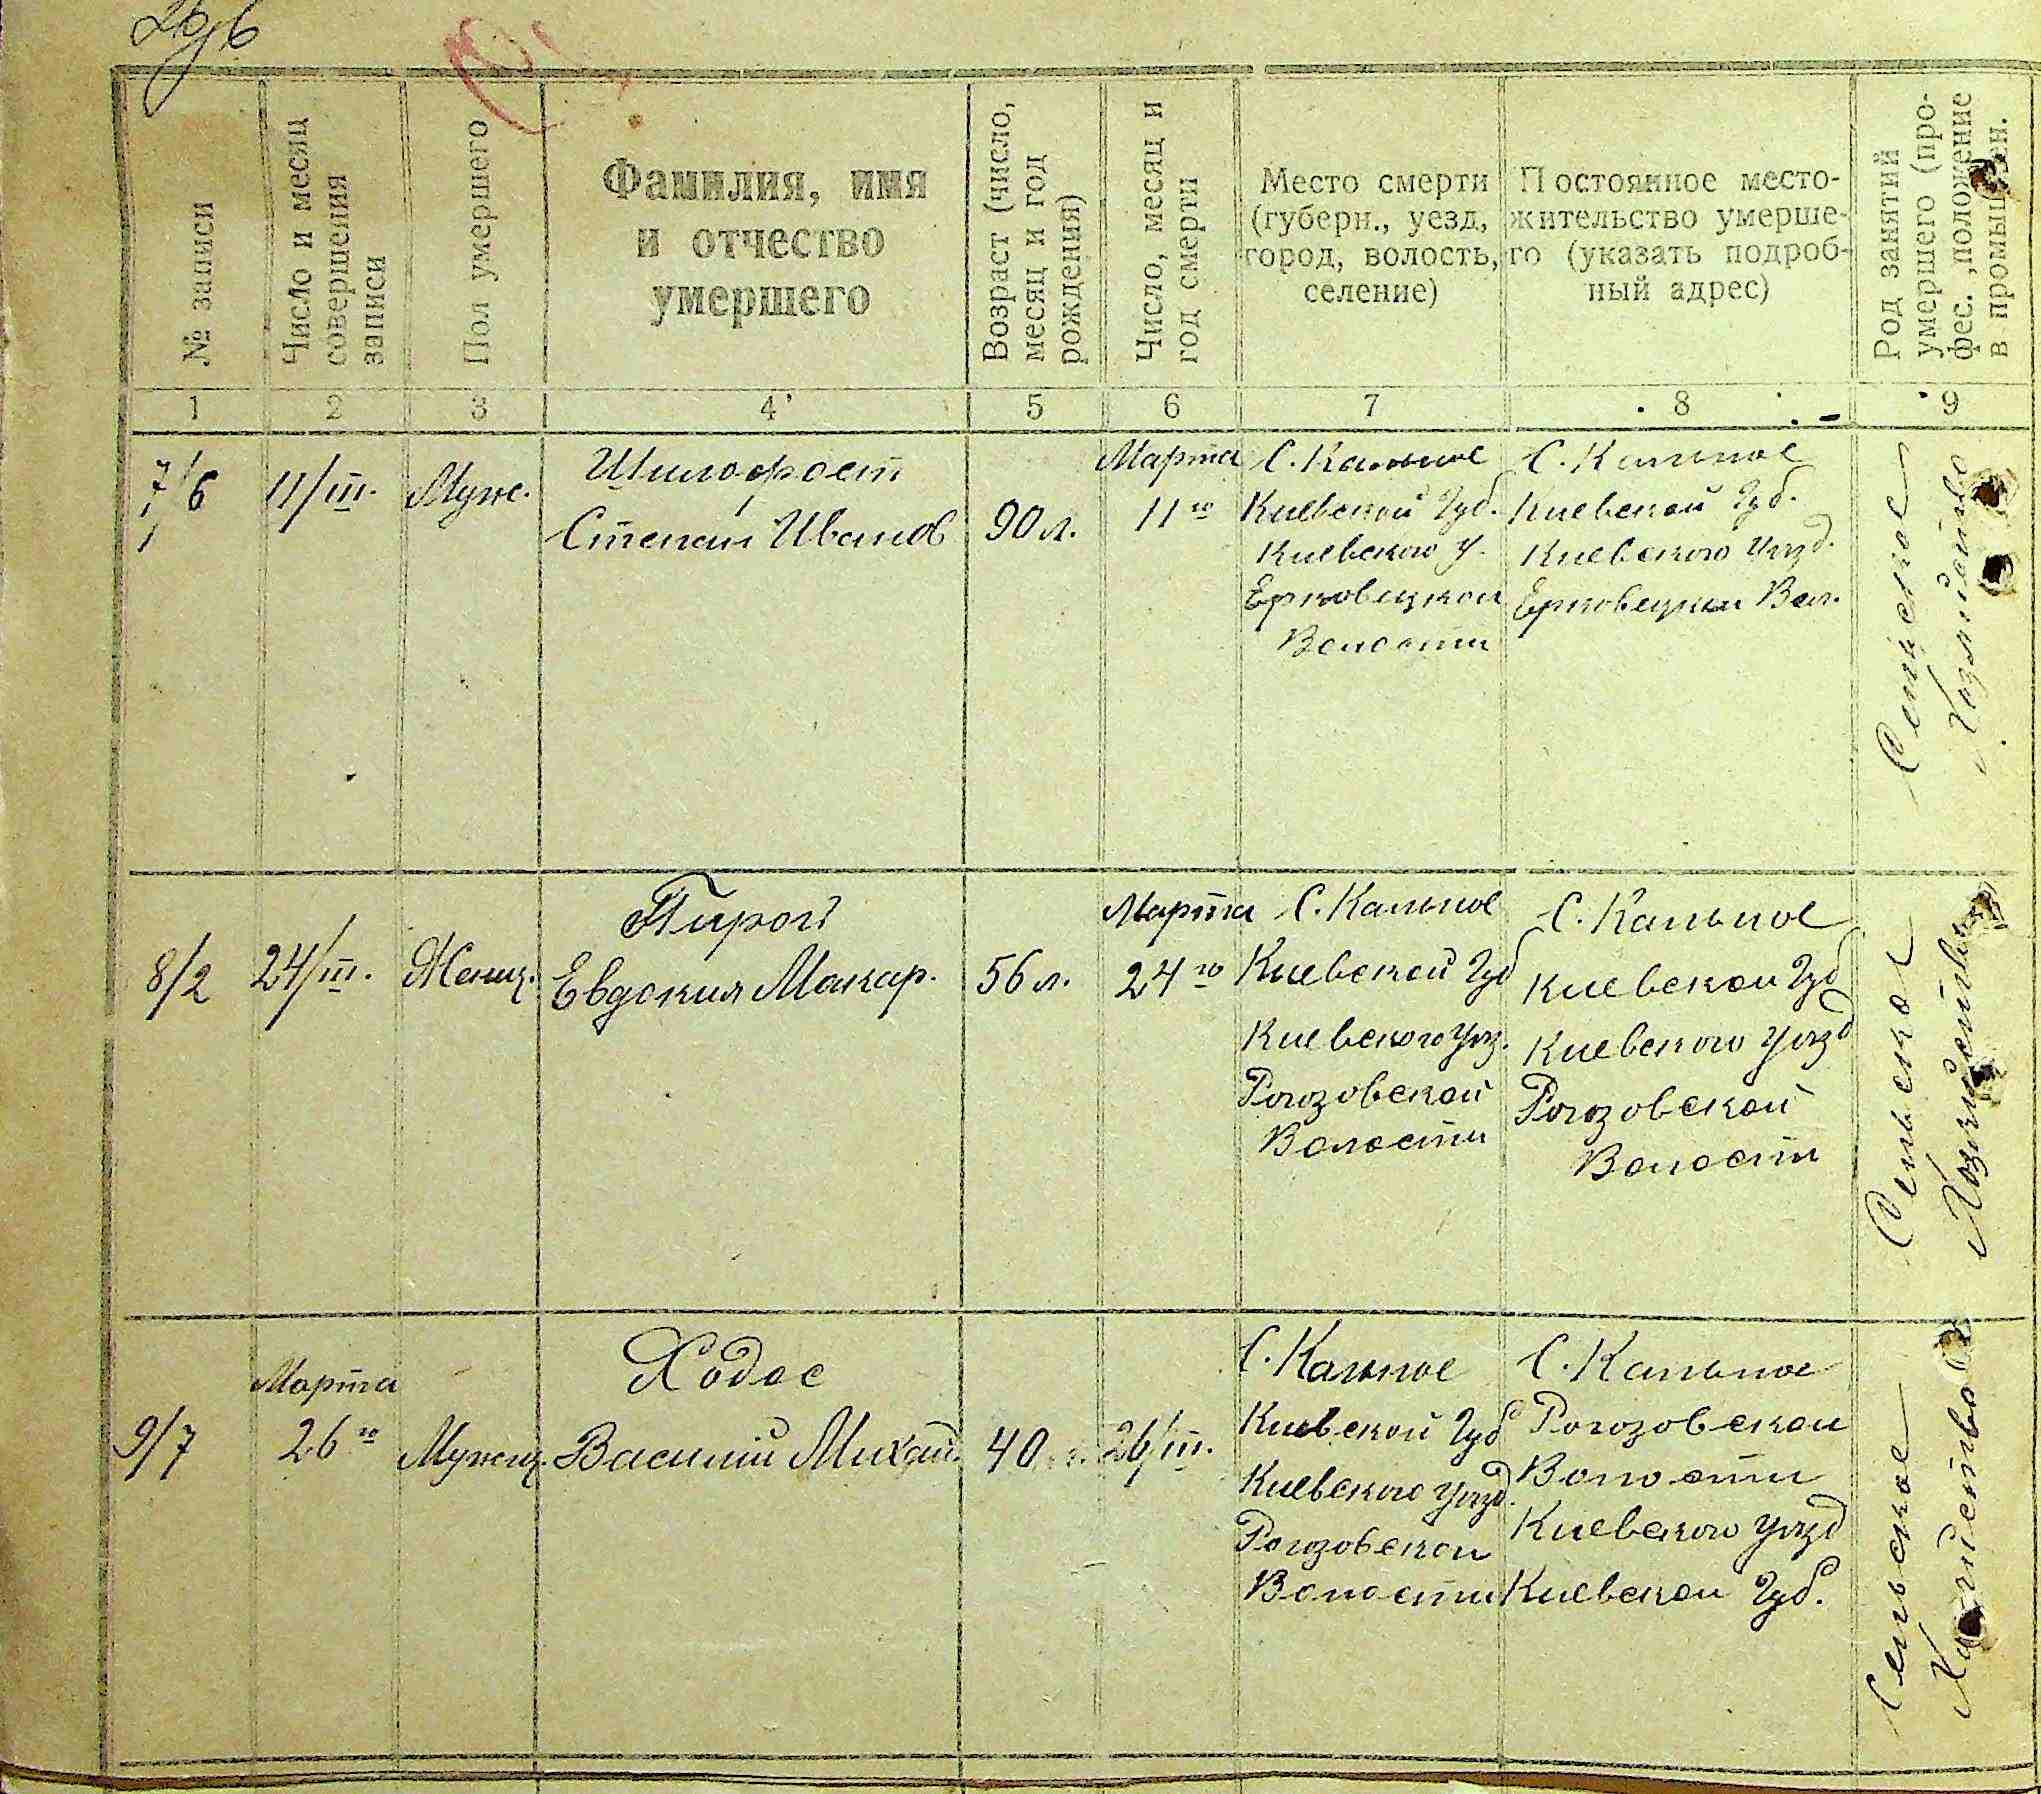 № записи
Число и месяц
совершения
записи
Пол умершего
Фамилия, имя
и отчество
умершего
Возраст (число,
месяц и год
рождения)
Число, месяц и
год смерти
Место смерти
(губерн., уезд,
город, волость,
селение)
Постоянное место-
жительство умерше-
го (указать подроб-
ный адрес)
Род занятий
умершего (про-
фес., положение
в промышлен.
1 2 3 4 5 6 7 8 9
7/6
11/III.
Муж.
Шилофост
Степан Иванов
90 л.
Марта
11го
С. Кальное
Киевской Губ.
Киевского У.
Ерковецкой
Волости
С. Кальное
Киевской Губ.
Киевского Уезд.
Ерковецкой Вол.
Сельское
Хозяйство
8/2
24/III.
Женщ.
Пирог
Евдокия Макар.
56 л.
Марта
24го
С. Кальное
Киевской Губ
Киевского Уез.
Рогозовской
Волости
С. Кальное
Киевской Губ
Киевского Уезд
Рогозовской
Волости
Сельское
Хозяйство
9/7
Марта
26го
Мужчи.
Ходос
Василий Михай.
40
26/III.
С. Кальное
Киевской Губ
Киевского Уезд.
Рогозовской
Волости
С. Кальное
Рогозовской
Волости
Киевского Уезд
Киевской Губ.
Сельское
Хозяйство